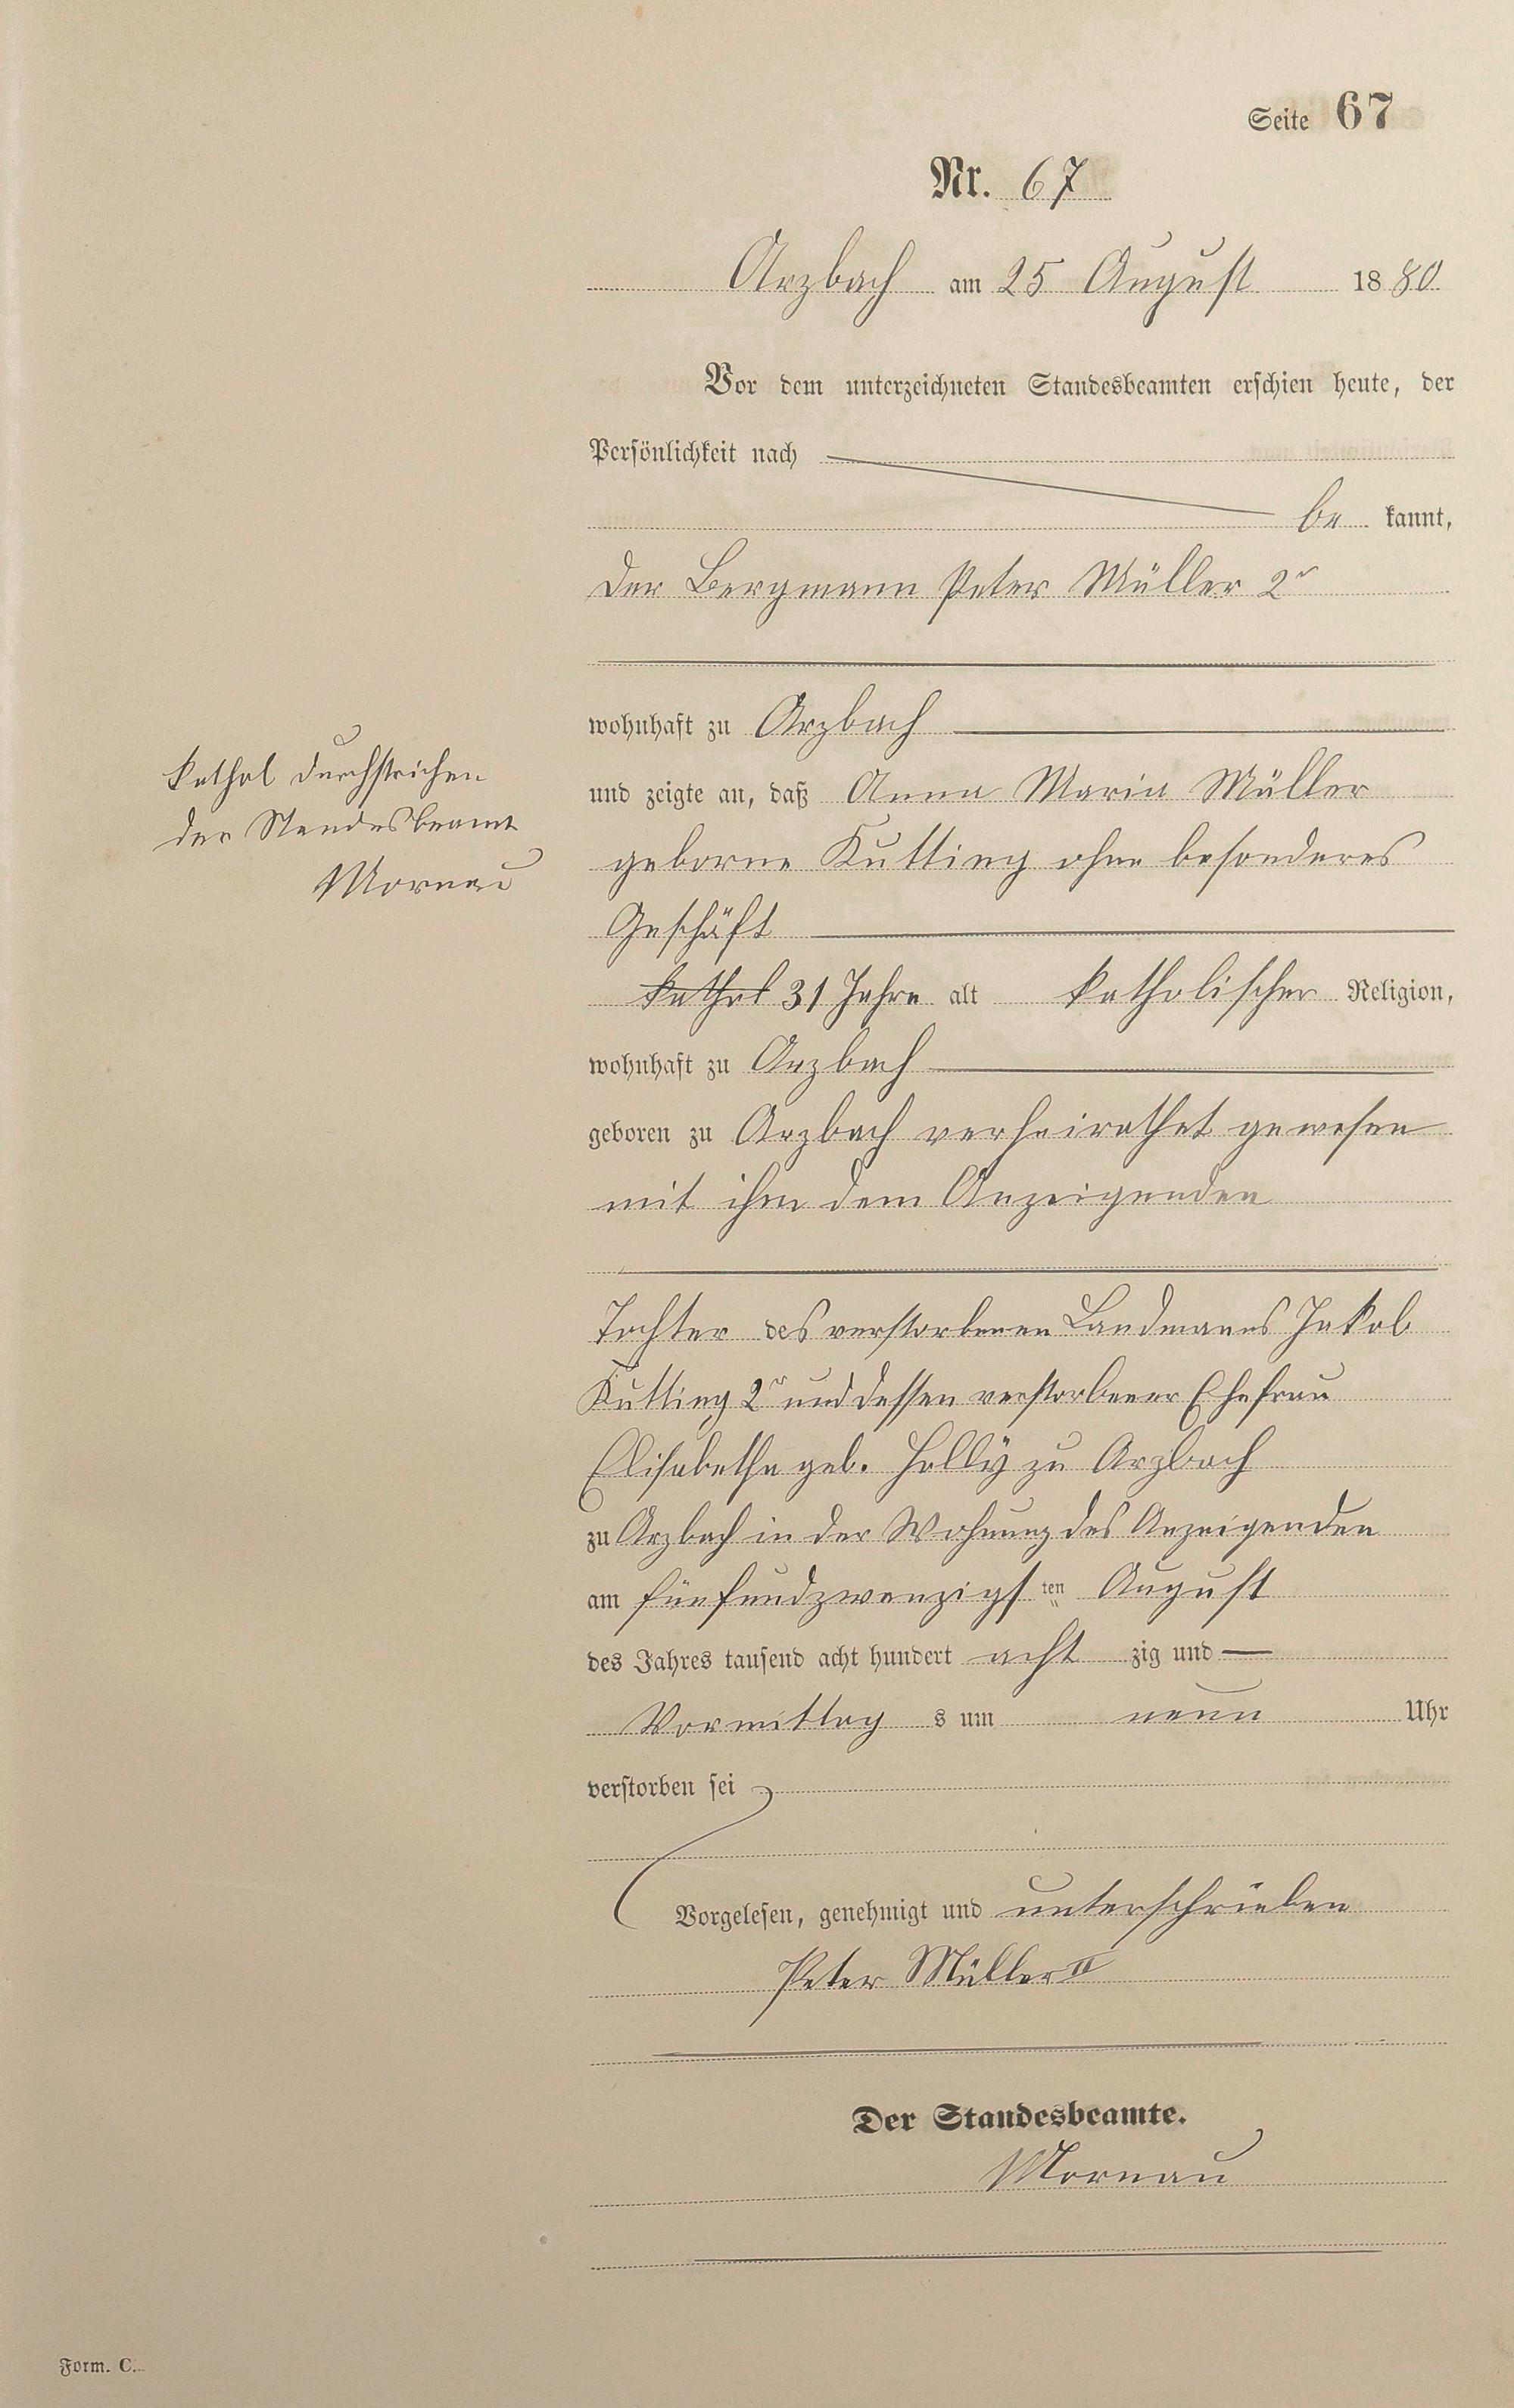 Seite 67
Nr. 67
Arzbach am 25 August 1880
Vor dem unterzeichneten Standesbeamten erschien heute, der
Persönlichkeit nach
be kannt,
der Bergmann Peter Müller 2r
wohnhaft zu Arzbach
kathol durchstrichen
der Standesbeamte
Mornau
und zeigte an, daß Anna Maria Müller
geborne Kutting ohne besonderes
Geschäft
kathol 31 Jahre alt katholischer Religion,
wohnhaft zu Arzbach
geboren zu Arzbach verheirathet gewesen
mit ihm dem Anzeigenden
Tochter des verstorbenen Landmanns Jakob
Kutting 2r und dessen verstorbener Ehefrau
Elisabetha geb. Holly zu Arzbach
zu Arzbach in der Wohnung des Anzeigenden
am fünfundzwanzigsten August
des Jahres tausend acht hundert acht zig und —
Vormittag s um neun Uhr
verstorben sei
Vorgelesen, genehmigt und unterschrieben
Peter Müller II
Der Standesbeamte.
Mornau
Form. C.